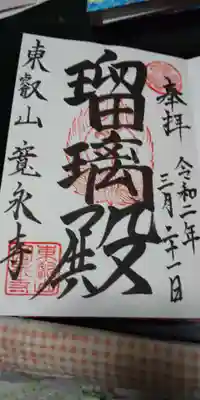 奉拝
令和二年
三月二十一日
瑠璃殿
東叡山 寛永寺